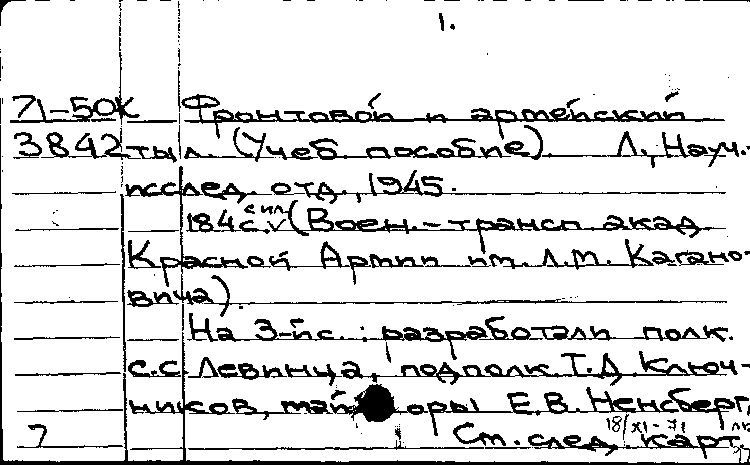 1.
71-50К Фронтовой и армейский
3842 тыл. (Учеб. пособие). Л., Науч.-
исслед. отд., 1945.
184 с. с ил. (Воен.-трансп. акад.
Красной Армии им. Л.М. Кагано-
вича).
На 3-й с.: разработали полк.
С.С. Левинца, подполк. Т.Д. Ключ-
ников, майоры Е.В. Ненсберг,
7 См. след. карт.
18/XI-71